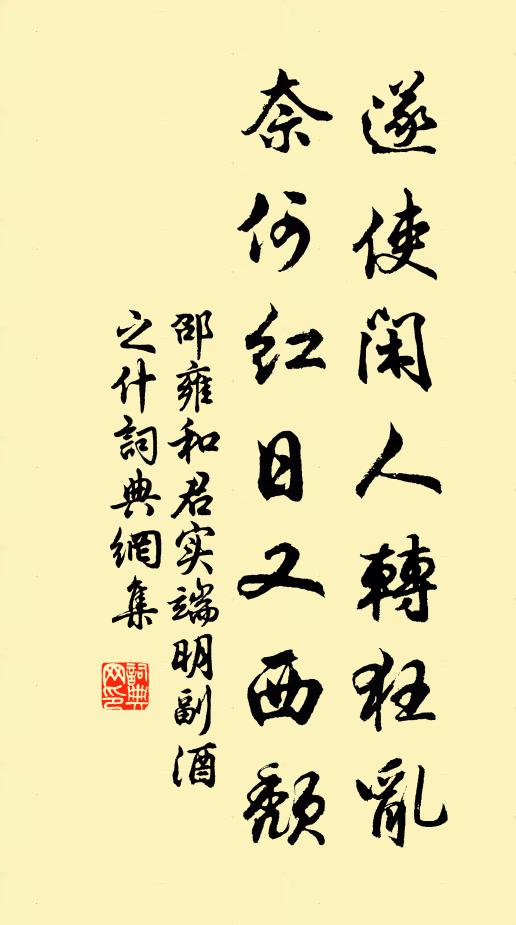 遂使闲人轉狂亂
奈何红日又西頽
邵雍和君实端明副酒
之什詞典網集
詞典网印